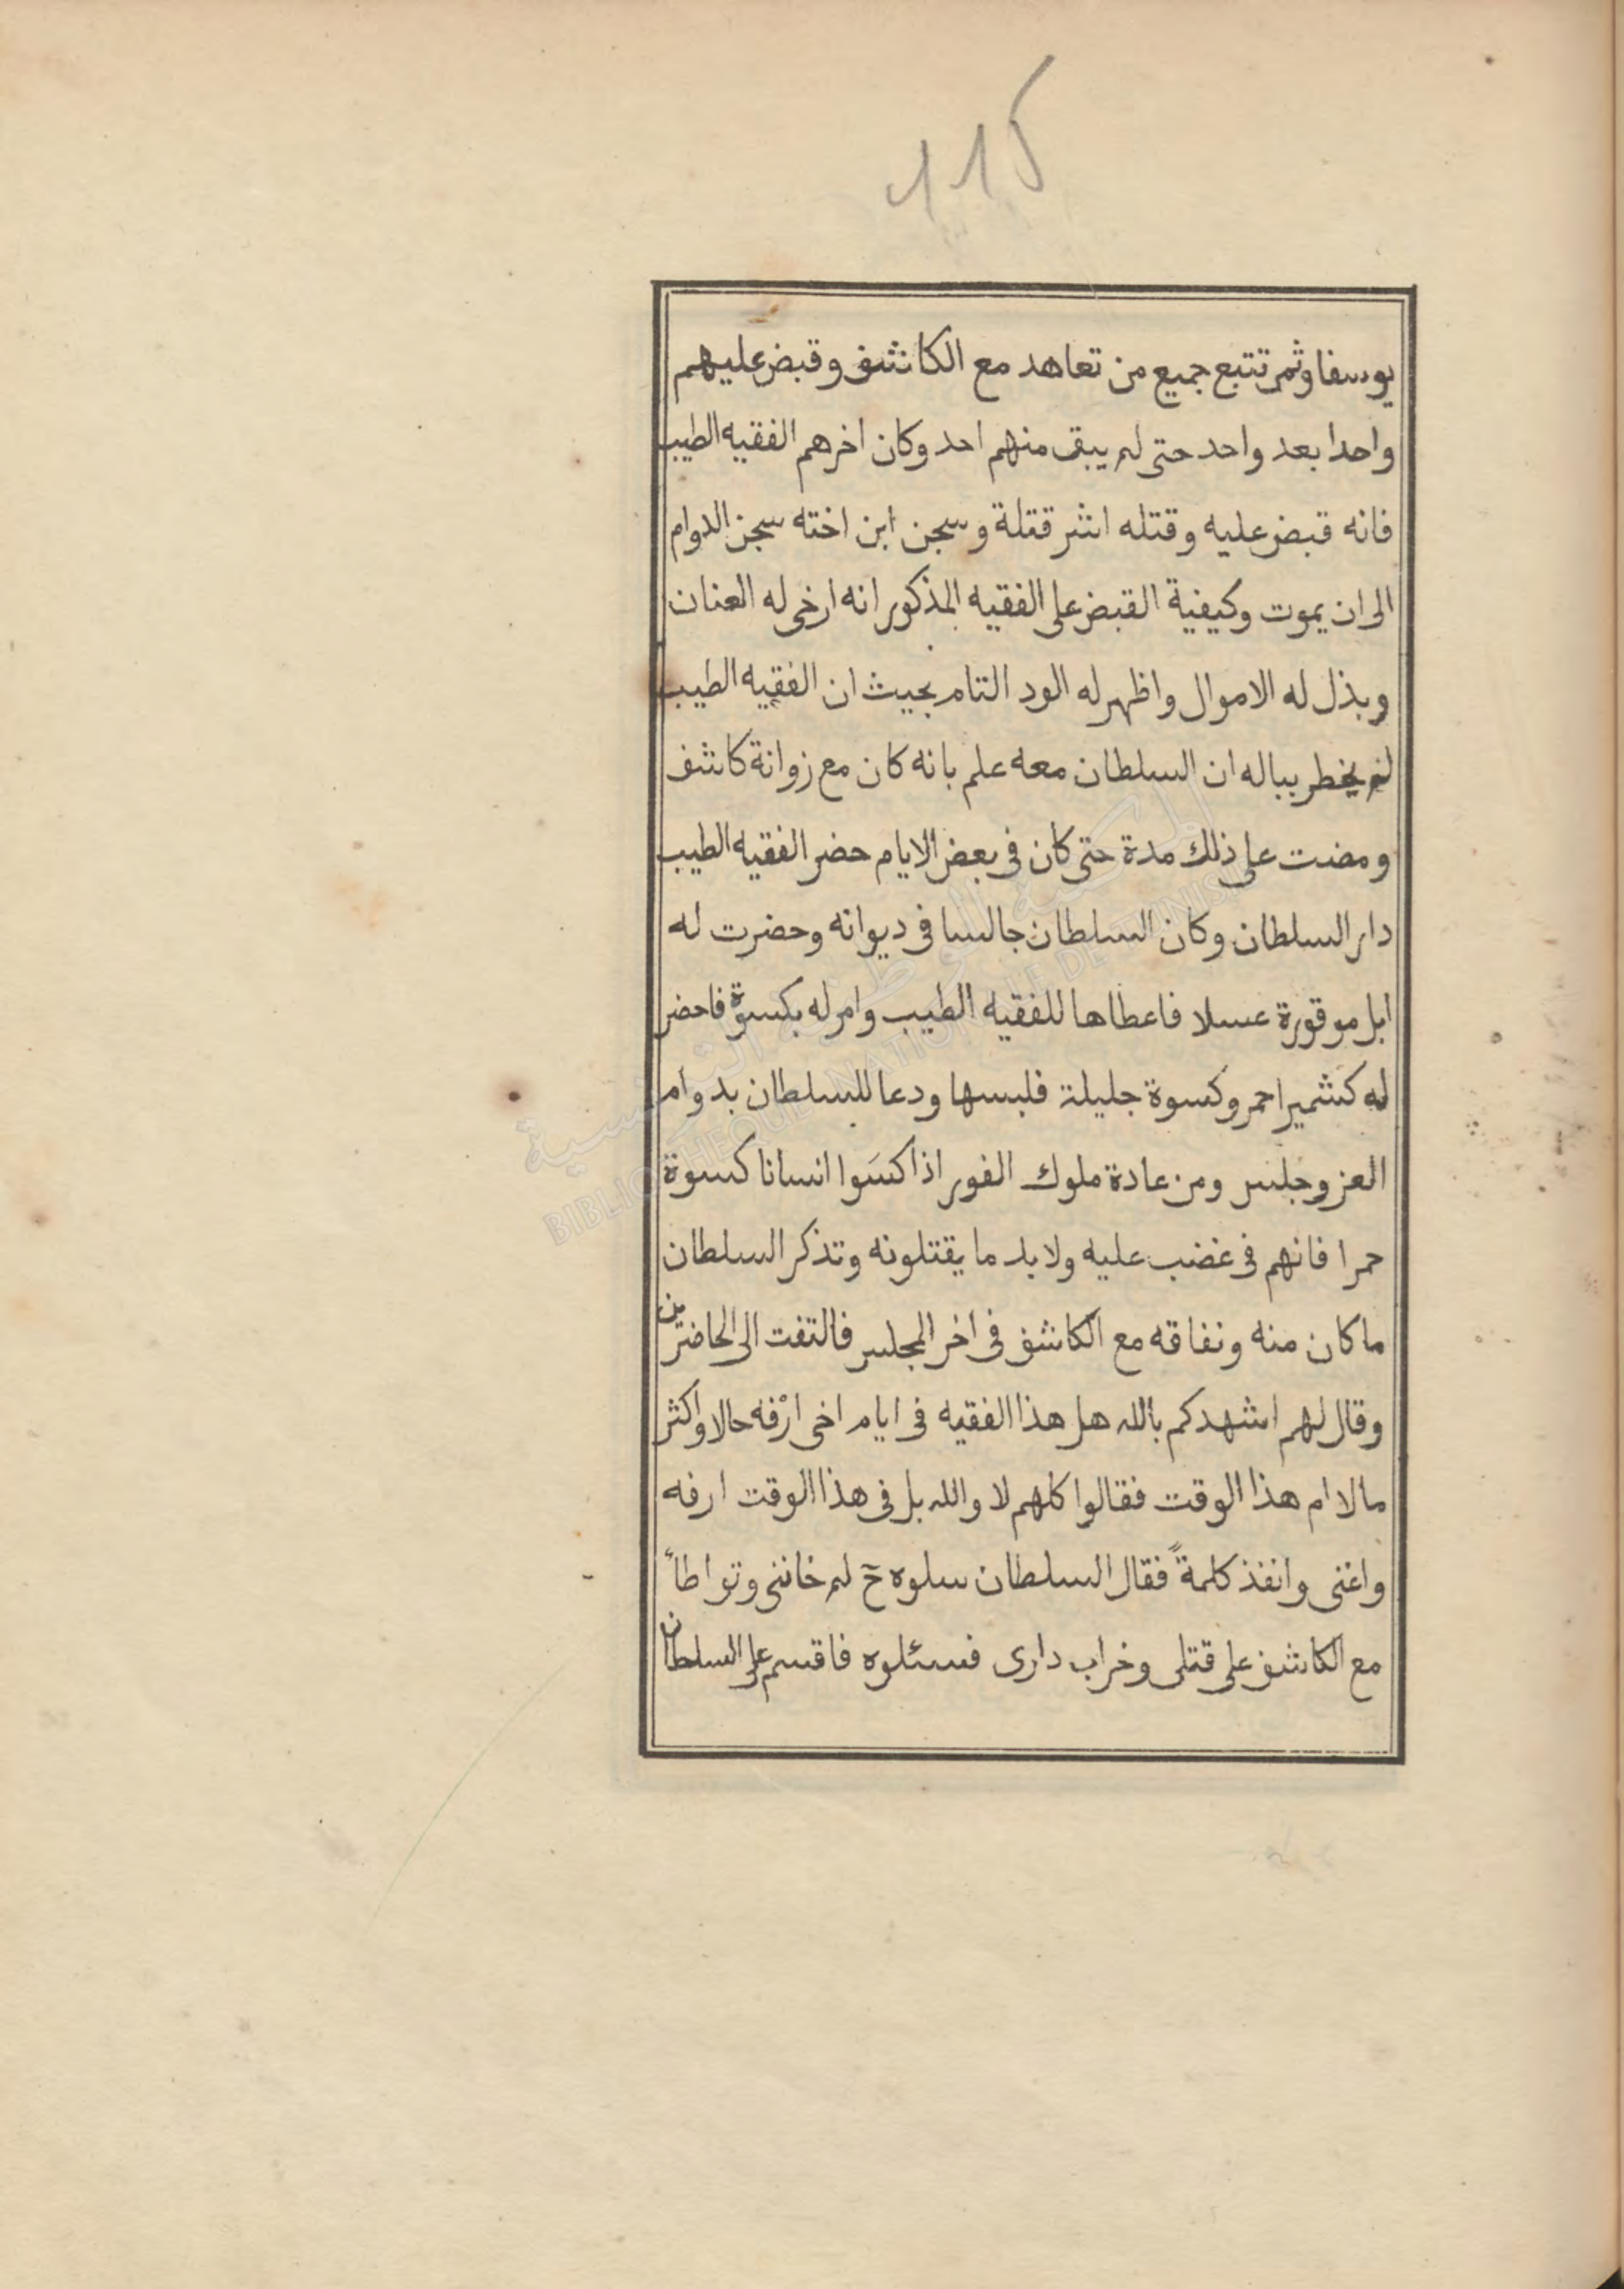 115
يوسفاوثم تتبع جميع من تعاهد مع الكاشف وقبض عليهم
واحدا بعد واحد حتى لم يبق منهم احد وكان اخرهم الفقيه الطيب
فانه قبض عليه وقتله اشر قتلة وسجن ابن اخته سجن الدوام
الى ان يموت وكيفية القبض على الفقيه المذكور انه ارخى له العنان
وبذل له الاموال واظهر له الود التام بحيث ان الفقيه الطيب
لم يخطر بباله ان السلطان معه علم بانه كان مع زوانة كاشف
ومضت على ذلك مدة حتى كان فى بعض الايام حضر الفقيه الطيب
دار السلطان وكان السلطان جالسا فى ديوانه وحضرت له
ابل موقورة عسلا فاعطاها للفقيه الطيب وامر له بكسوة فاحضر
له كشمير احمر وكسوة جليلة فلبسها ودعا للسلطان بدوام
العز وجلس ومن عادة ملوك الفور اذا كسَوا انسانا كسوة
حمرا فانهم فى غضب عليه ولا بد ما يقتلونه وتذكر السلطان
ما كان منه ونفاقه مع الكاشف فى اخر المجلس فالتفت الى الحاضرين
وقال لهم اشهدكم بالله هل هذا الفقيه فى ايام اخى ارْفه حالا واكثر
مالا ام هذا الوقت فقالوا كلهم لا والله بل فى هذا الوقت ارفه
واغنى وانفذ كلمةً فقال السلطان سلوه ح لم خاننى وتواطأ
مع الكاشف على قتلى وخراب دارى فسئلوه فاقسم على السلطان
المكتبة الوطنية التونسية
BIBLIOTHEQUE NATIONALE DE TUNISIE